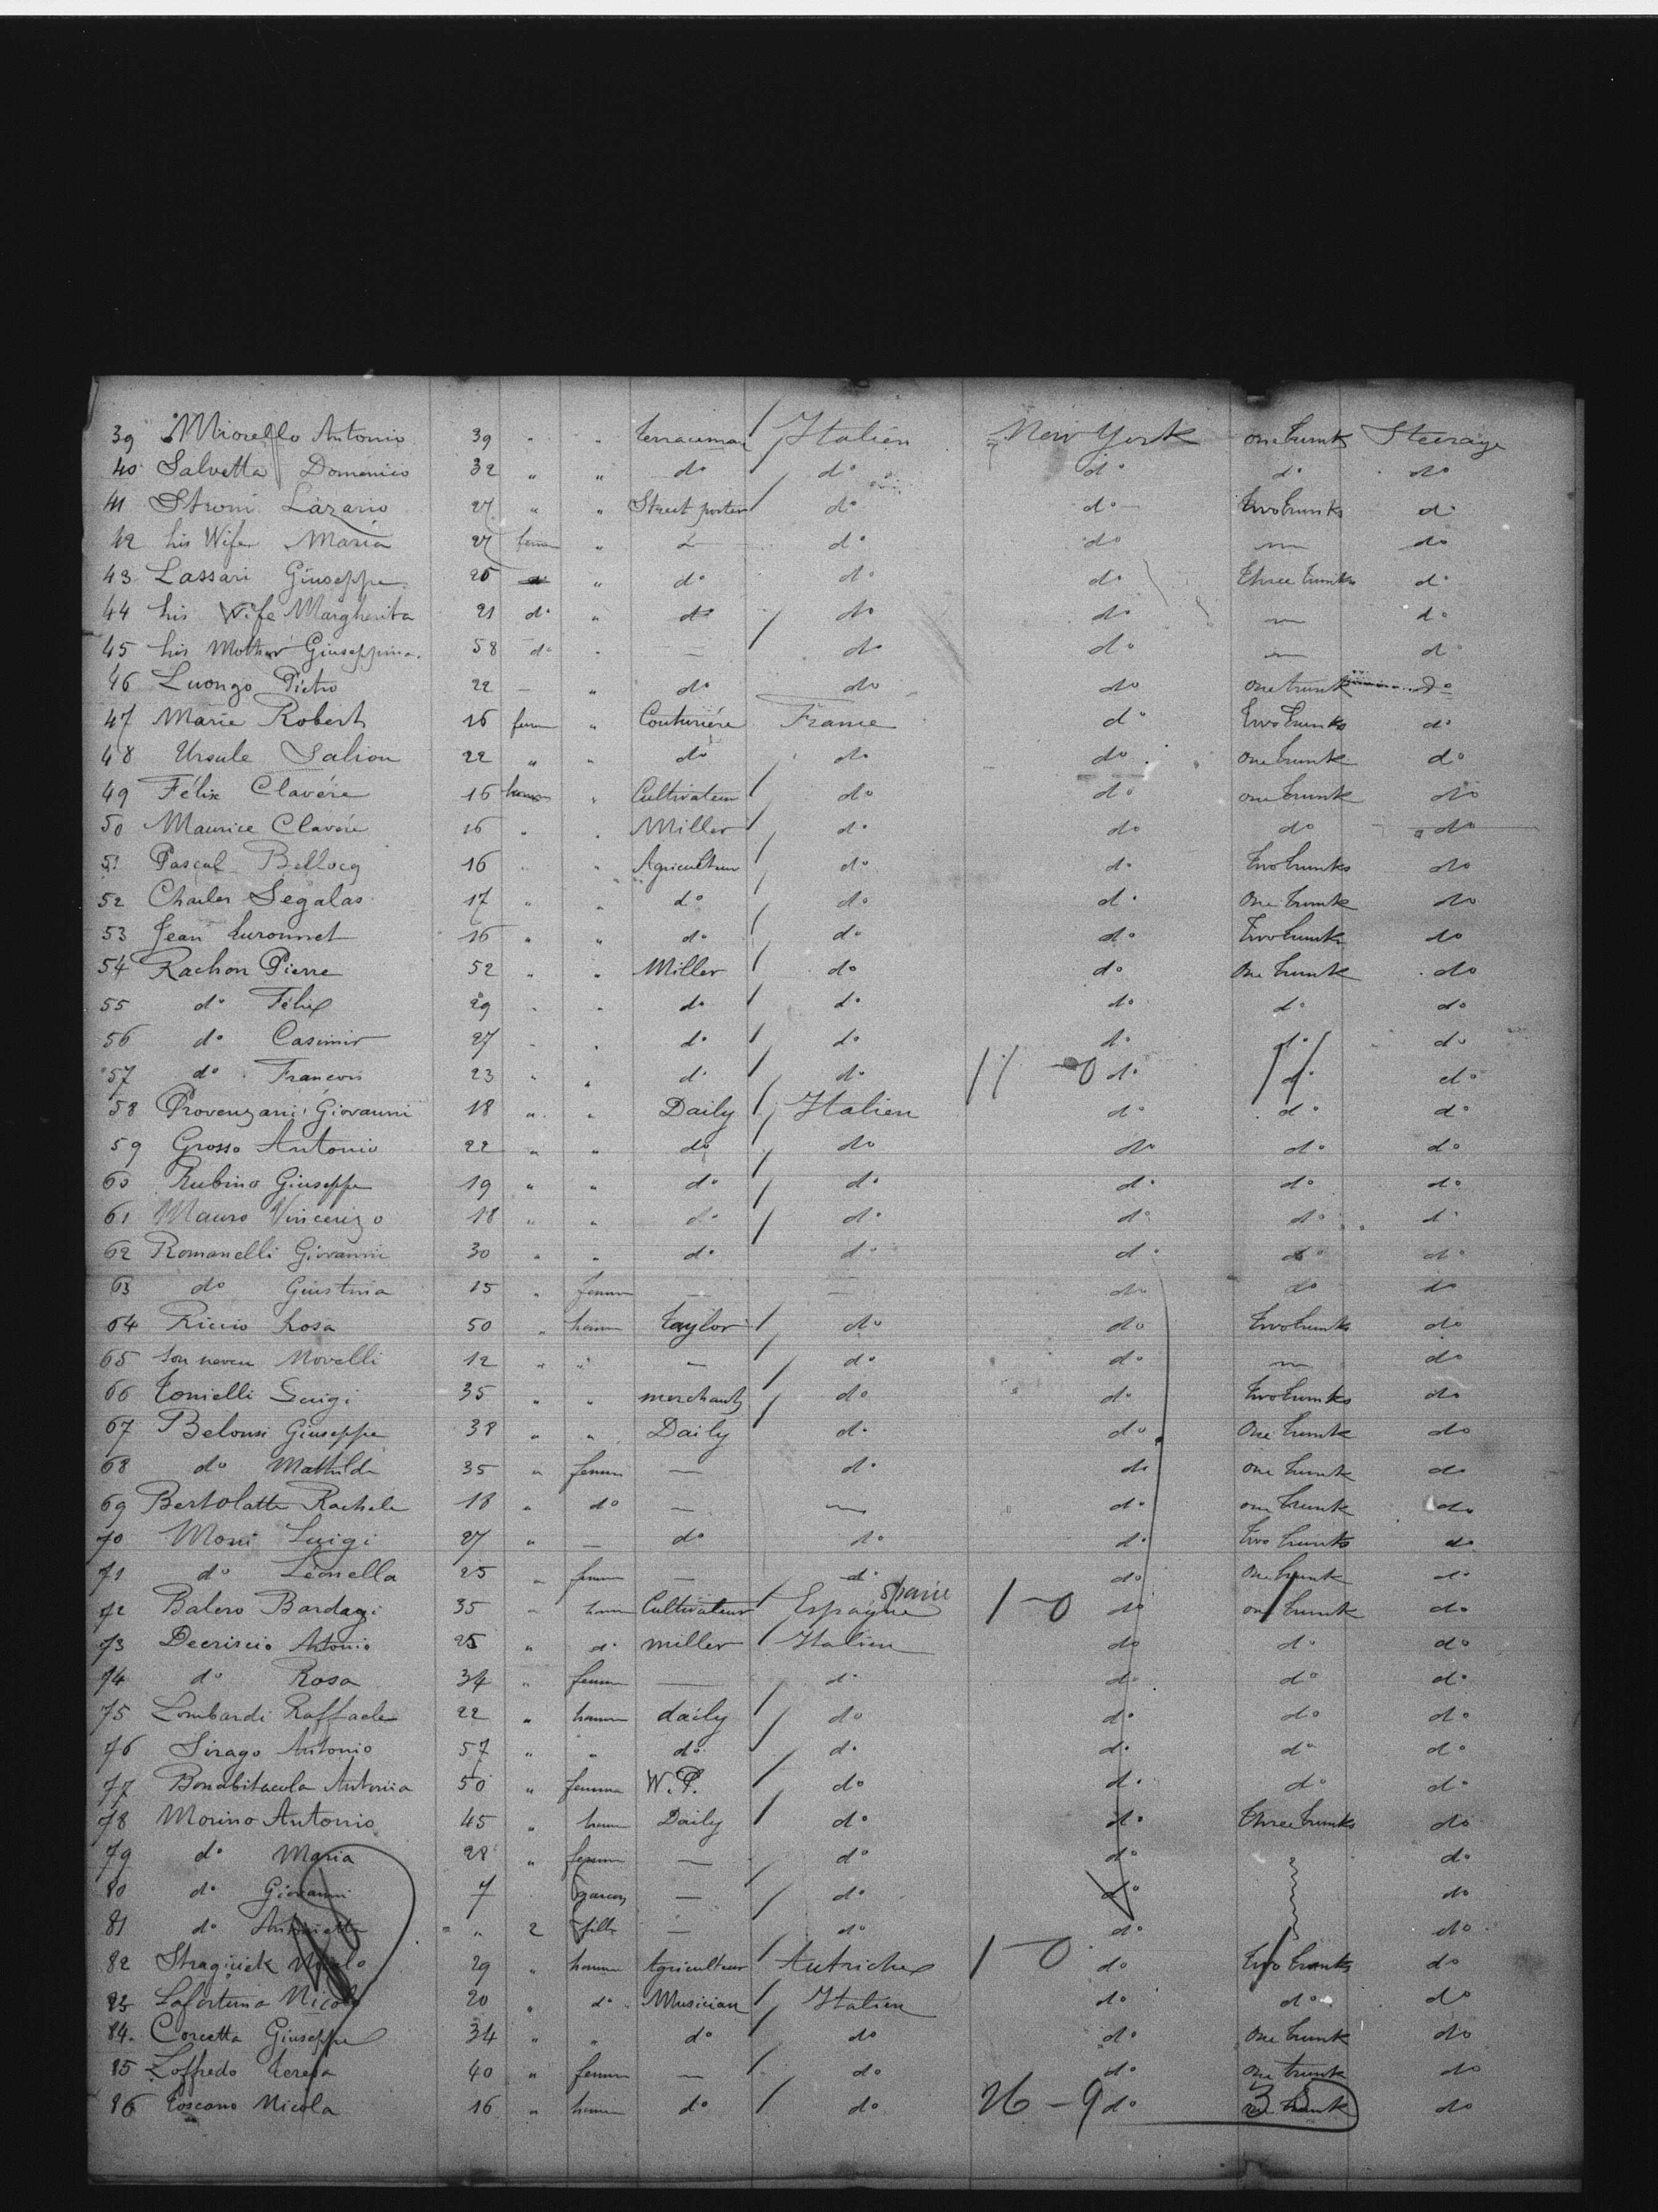 39 Miorello Antonio 39 " " terraceman / Italien New York one trunk Steerage
40 Salvetta Domenico 32 " " do / do do do do
41 Stroni Lazario 27 " " Street porter / do do two trunks do
42 his Wife Maria 27 femm " — do do — do
43 Lassari Giuseppe 26 " do do do three trunks do
44 his Wife Margherita 21 do " do / do do — do
45 his Mother Giuseppina 58 do " — do do — do
46 Luongo Pietro 22 — " do do do one trunk do
47 Marie Robert 16 femm " Couturière France do two trunks do
48 Ursule Salion 22 " " do do do one trunk do
49 Félix Clavére 16 homm " Cultivateur / do do one trunk do
50 Maurice Clavére 16 " " Miller / do do do do
51 Pascal Bellocq 16 " " Agriculteur / do do two trunks do
52 Charles Segalas 17 " " do / do do one trunk do
53 Jean 16 " " do / do do two trunks do
54 Rachon Pierre 52 " " Miller / do do one trunk do
55 do Félix 29 " " do / do do do do
56 do Casimir 27 " " do / do do do do
57 do Francois 23 " " do / do 11 - 0 do 11 do do
58 Provenzani Giovanni 18 " " Daily / Italien do do do
59 Grosso Antonio 22 " " do / do do do do
60 Rubino Giuseppe 19 " " do / do do do do
61 Mauro Vincenzo 18 " " do / do do do do
62 Romanelli Giovanni 30 " " do do do do do
63 do Giustina 15 " femm — — do do do
64 Riccio Rosa 50 " homm taylor / do do two trunks do
65 son neveu Novelli 12 " " — / do do — do
66 Tonielli Luigi 35 " " merchant / do do two trunks do
67 Belonsi Giuseppe 38 " " Daily / do do One trunk do
68 do Mathilde 35 " femm — do do one trunk do
69 Bertolatte Rachele 18 " do — — do one trunk do
70 Moni Luigi 27 " — do do do two trunks do
71 do Léonella 25 " femm — do do one trunk do
72 Balero Bardagi 35 " homm Cultivateur / Espagne Spain 1 - 0 do one trunk do
73 Decriscio Antonio 25 " do miller / Italien do do do
74 do Rosa 34 " femm — do do do do
75 Lombardi Raffaele 22 " homm daily / do do do do
76 Sirago Antonio 57 " " do / do do do do
77 Bonabitacola Antonia 50 " femme W.P. / do do do do
78 Morino Antonio 45 " homm Daily / do do three trunks do
79 do Maria 28 " femm — do do do
80 do Giovanni 7 garçon — / do do do
81 do " 2 fille — do do do
82 29 " homme Agriculteur / Autriche 1 - 0 do two trunks do
83 Lafortuna Nicola 20 " do Musician / Italien do do do
84 Corcetta Giuseppe 34 " " do / do do one trunk do
85 Loffredo Teresa 40 " femm — / do do one trunk do
86 Toscano Nicola 16 " homm do / do 26 - 9 do one trunk 38 do